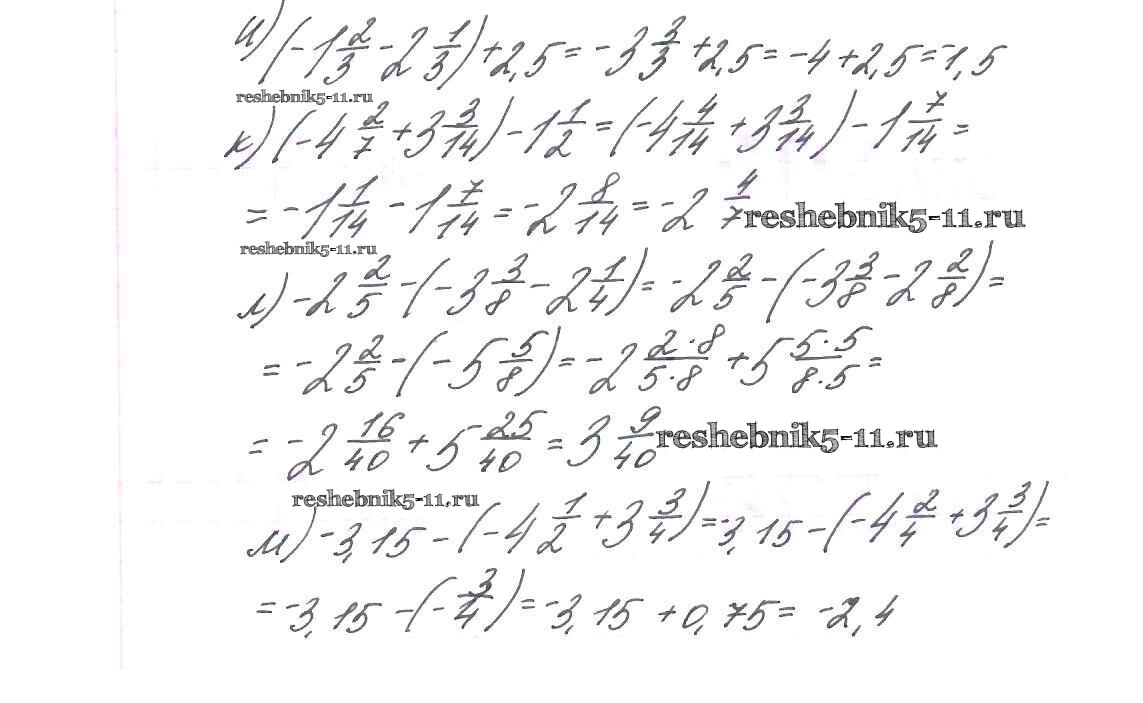 и) (-1 2/3 - 2 1/3) + 2,5 = -3 3/3 + 2,5 = -4 + 2,5 = -1,5
reshebnik5-11.ru
к) (-4 2/7 + 3 3/14) - 1 1/2 = (-4 4/14 + 3 3/14) - 1 7/14 =
= -1 1/14 - 1 7/14 = -2 8/14 = -2 4/7 reshebnik5-11.ru
reshebnik5-11.ru
л) -2 2/5 - (-3 3/8 - 2 1/4) = -2 2/5 - (-3 3/8 - 2 2/8) =
= -2 2/5 - (-5 5/8) = -2 2·8/5·8 + 5 5·5/8·5 =
= -2 16/40 + 5 25/40 = 3 9/40 reshebnik5-11.ru
reshebnik5-11.ru
м) -3,15 - (-4 1/2 + 3 3/4) = -3,15 - (-4 2/4 + 3 3/4) =
= -3,15 - (-3/4) = -3,15 + 0,75 = -2,4